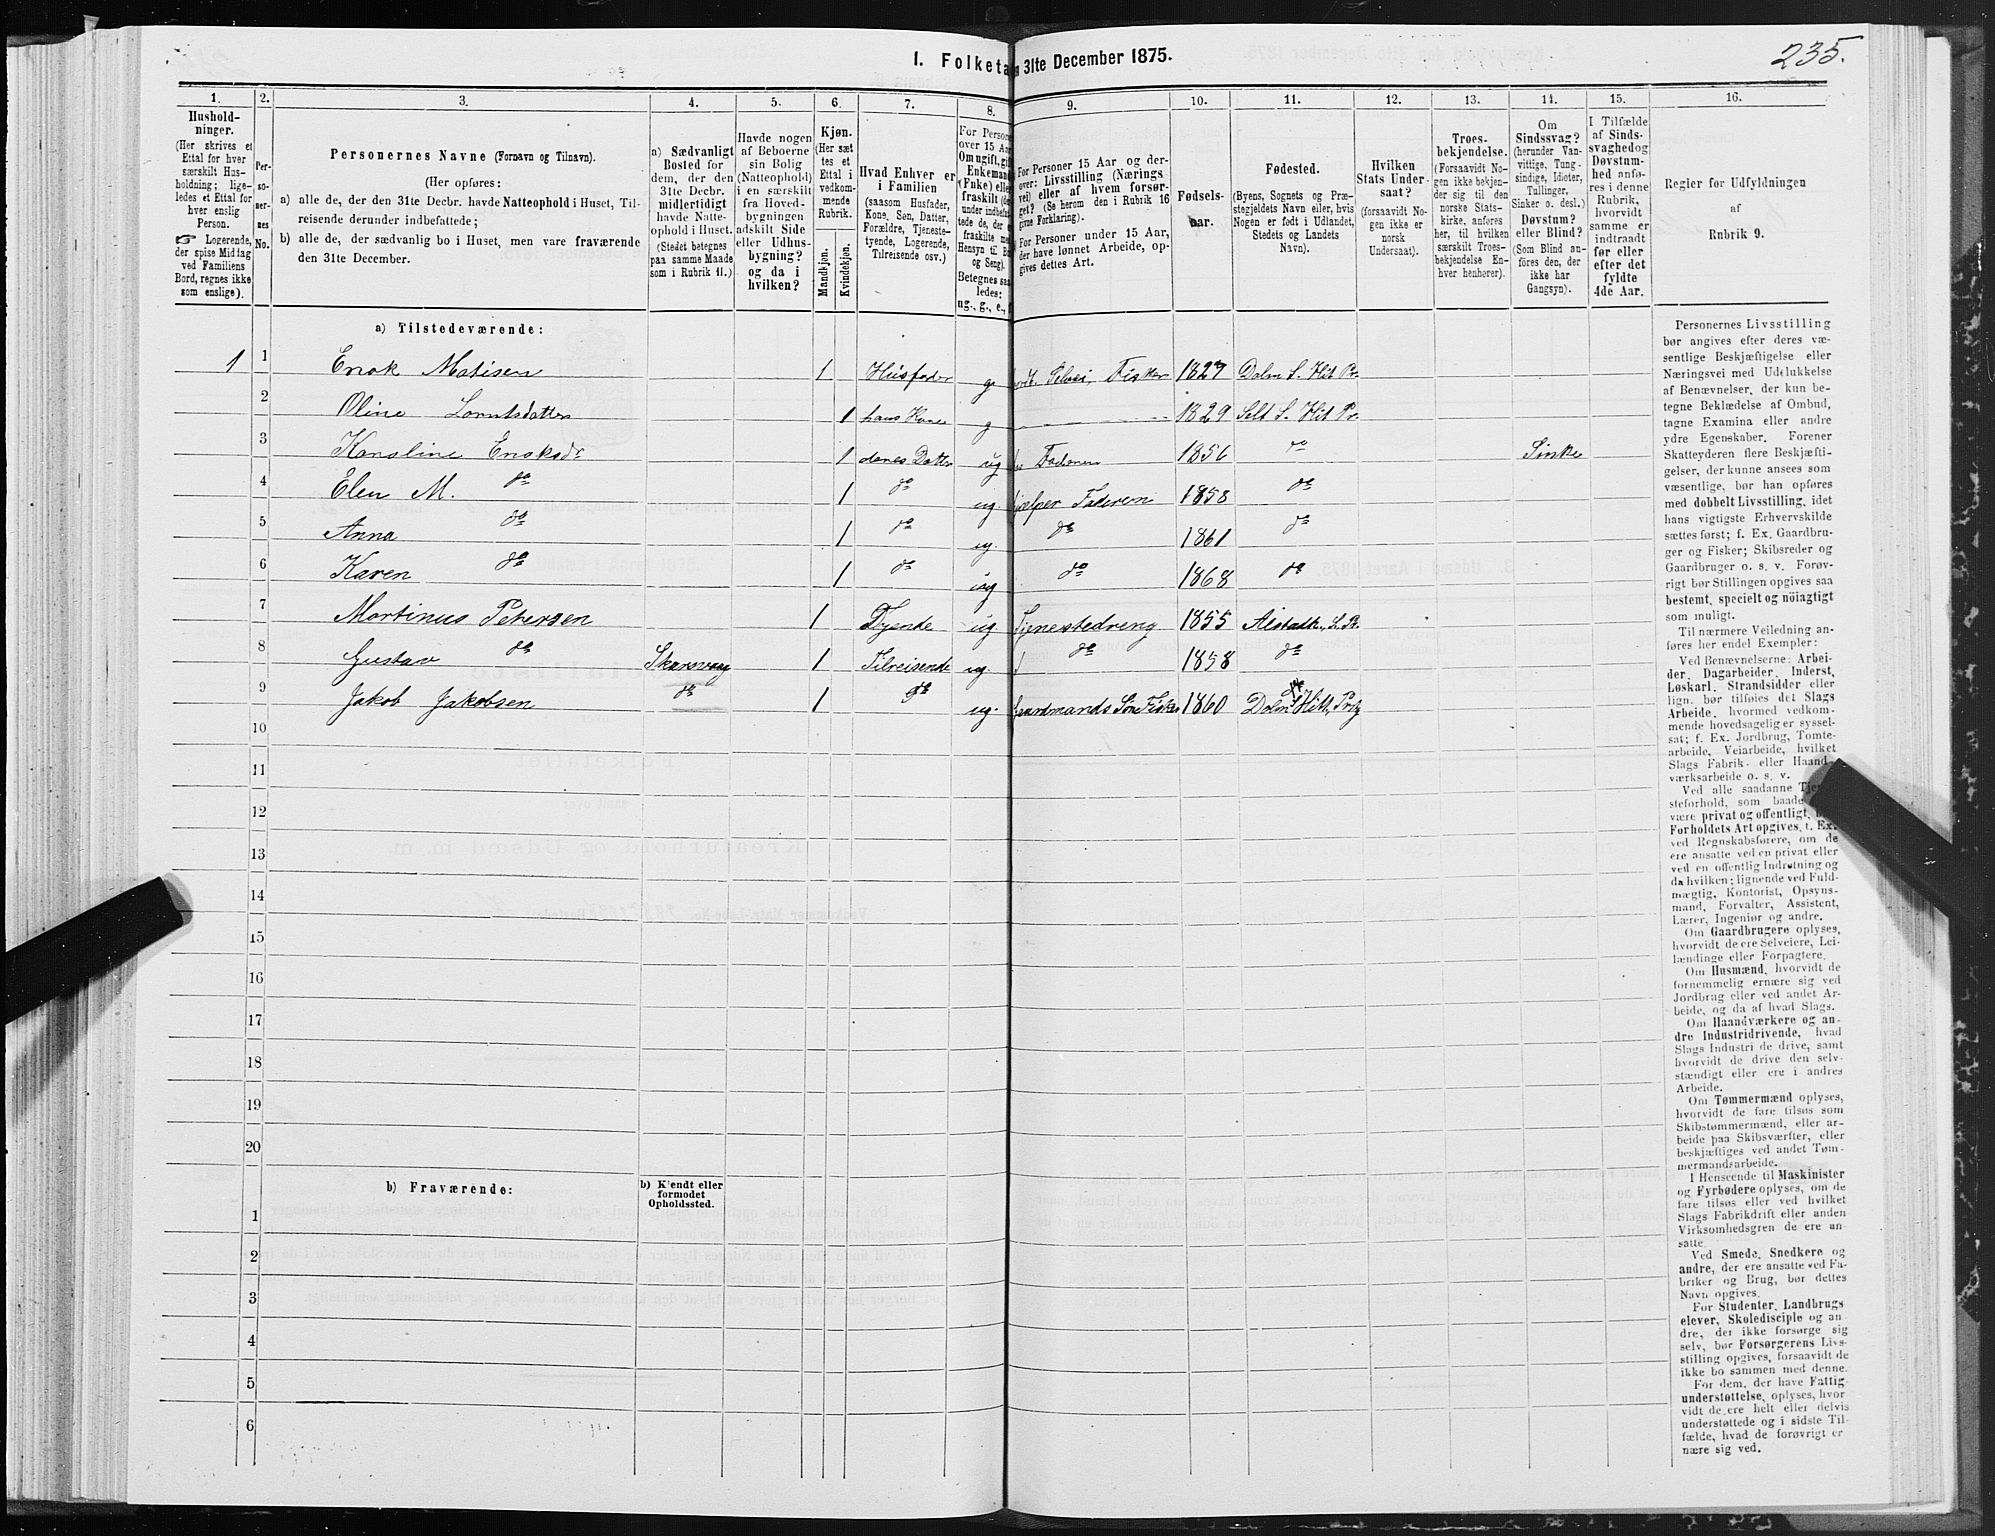 235.
I. Folketa 31te December 1875.
1. 2. 3. 4. 5. 6. 7. 8. 9. 10. 11. 12. 13. 14. 15. 16.
Hushold-
ninger.
(Her skrives et
Ettal for hver
særskilt Hus-
holdning; lige-
ledes et Ettal for
hver enslig
Person.
☞ Logerende,
der spise Middag
ved Familiens
Bord, regnes ikke
som enslige).
Per-
so-
ner-
nes
No.
Personernes Navne (Fornavn og Tilnavn).
(Her opføres:
a) alle de, der den 31te Decbr. havde Natteophold i Huset, Til-
reisende derunder indbefattede;
b) alle de, der sædvanlig bo i Huset, men vare fraværende
den 31te December.
a) Sædvanligt
Bosted for
dem, der den
31te Decbr.
midlertidigt
havde Natte-
ophold i Huset.
(Stedet betegnes
paa samme Maade
som i Rubrik 11.)
Havde nogen
af Beboerne
sin Bolig
(Natteophold)
i en særskilt
fra Hoved-
bygningen
adskilt Side
eller Udhus-
bygning?
og da i
hvilken?
Kjøn.
(Her sæt
tes et
Ettal i
vedkom-
mende
Rubrik.
Mandkjøn.
Kvindekjøn.
Hvad Enhver er
i Familien
(saasom Husfader,
Kone, Søn, Datter,
Forældre, Tjeneste-
tyende, Logerende,
Tilreisende osv.)
For Person
over 15 Aa
Om ugift, gif
Enkemand
(Enke) elle
fraskilt (de
under indbefat
tede de, der e
fraskilte m
Hensyn til Bo
og Seng).
Betegnes saa
ledes:
ug., g., e.,
For Personer 15 Aar og der-
over: Livsstilling (Nærings
vei) eller af hvem forsør-
get? (Se herom den i Rubrik 16
givne Forklaring).
For Personer under 15 Aar,
der have lønnet Arbeide, op-
gives dettes Art.
Fødsels-
aar.
Fødested.
(Byens, Sognets og Præ-
stegjeldets Navn eller, hvis
Nogen er født i Udlandet,
Stedets og Landets
Navn).
Hvilken
Stats Under-
saat?
(forsaavidt No-
gen ikke er
norsk
Undersaat).
Troes-
bekjendelse.
(Forsaavidt No-
gen ikke bekjen-
der sig til den
norske Stats-
kirke, anføres
her, til hvilken
særskilt Troes-
bekjendelse En-
hver henhører).
Om
Sindssvag?
(herunder Van-
vittige, Tung-
sindige, Idioter,
Tullinger,
Sinker o. desl.)
Døvstum?
eller Blind?
(Som Blind an-
føres den, der
ikke har
Gangsyn).
I Tilfælde
af Sinds-
svaghed og
Døvstum-
hed anfø-
res i denne
Rubrik,
hvorvidt
samme er
indtraadt
før eller
efter det
fyldte
4de Aar.
Regler for Udfyldningen
af
Rubrik 9.
a) Tilstedeværende:
1 1 Enok Matisen 1 Husfader g Selvei, Fisker 1827 Dolm S. Hit Pr
2 Oline Lorntsdatter 1 hans Kone g 1829 Selt S. Hit Pr
3 Karoline Enoksdr 1 deres Datter ug Faderen 1856 do Sinke
4 Elen M. do 1 do ug. jælper Faderen 1858 do
5 Anna do 1 do ug. do 1861 do
6 Karen do 1 do ug do 1868 do
7 Martinus Petersen 1 Tjende ug Tjenestedreng 1855
8 Gustav do Skarsvaag 1 Tilreisende ug. do 1858 do
9 Jakob Jakobsen do 1 do ug. aardmands Søn Fisker 1860 Dolm S Hitt. Prtg
10
11
12
13
14
15
16
17
18
19
20
b) Fraværende:
b) Kjendt eller
formodet
Opholdssted.
1
2
3
4
5
6
Personernes Livsstilling
bør angives efter deres væ-
sentlige Beskjæftigelse eller
Næringsvei med Udelukkelse
af Benævnelser, der kun be-
tegne Beklædelse af Ombud,
tagne Examina eller andre
ydre Egenskaber. Forener
Skatteyderen flere Beskjæfti-
gelser, der kunne ansees som
væsentlige, bør han opføres
med dobbelt Livsstilling, idet
hans vigtigste Erhvervskilde
sættes først; f. Ex. Gaardbru-
ger og Fisker; Skibsreder og
Gaardbruger o. s. v. Forøv-
rigt bør Stillingen opgives saa
bestemt, specielt og nøiagtigt
som muligt.
Til nærmere Veiledning an-
føres her endel Exempler:
Ved Benævnelserne: Arbei-
der, Dagarbeider, Inderst,
Løskarl, Strandsidder eller
lign. bør tilføies det Slags
Arbeide, hvormed vedkom-
mende hovedsagelig er syssel-
sat; f. Ex. Jordbrug, Tomte-
arbeide, Veiarbeide, hvilket
Slags Fabrik- eller Haand-
værksarbeide o. s. v.
Ved alle saadanne Tje
steforhold, som baade
være privat og offentligt,
Forholdets Art opgives, t. Ex.
ved Regnskabsførere, om de
ere ansatte ved en privat eller
ved en offentlig Indretning og
da hvilken; lignende ved Fuld-
mægtig, Kontorist, Opsyns-
mand, Forvalter, Assistent,
Lærer, Ingeniør og andre.
Om Gaardbrugere oplyses,
hvorvidt de ere Selveiere, Lei-
lændinge eller Forpagtere.
Om Husmænd, hvorvidt de
fornemmelig ernære sig ved
Jordbrug eller ved andet Ar-
beide, og da af hvad Slags.
Om Haandværkere og an-
dre Industridrivende, hvad
Slags Industri de drive, samt
hvorvidt de drive den selv-
stændigt eller ere i andres
Arbeide.
Om Tømmermænd oplyses,
hvorvidt de fare tilsøs som
Skibstømmermænd, eller ar-
beide paa Skibsværfter, eller
beskjæftiges ved andet Tøm-
mermandsarbeide.
I Henseende til Maskinister
og Fyrbødere oplyses, om de
fare tilsøs eller ved hvilket
Slags Fabrikdrift eller anden
Virksomhedsgren de ere an-
satte.
Ved Smede, Snedkere og
andre, der ere ansatte ved Fa-
briker og Brug, bør dettes
Navn opgives.
For Studenter, Landbrugs
elever, Skoledisciple og an-
dre, der ikke forsørge sig
selv, bør Forsørgerens Livs-
stilling opgives, forsaavidt de
ikke bo sammen med denne.
For dem, der have Fattig-
understøttelse, oplyses, hvor
vidt de ere helt eller delvis
understøttede og i sidste Til-
fælde, hvad de forøvrigt er
nære sig ved.